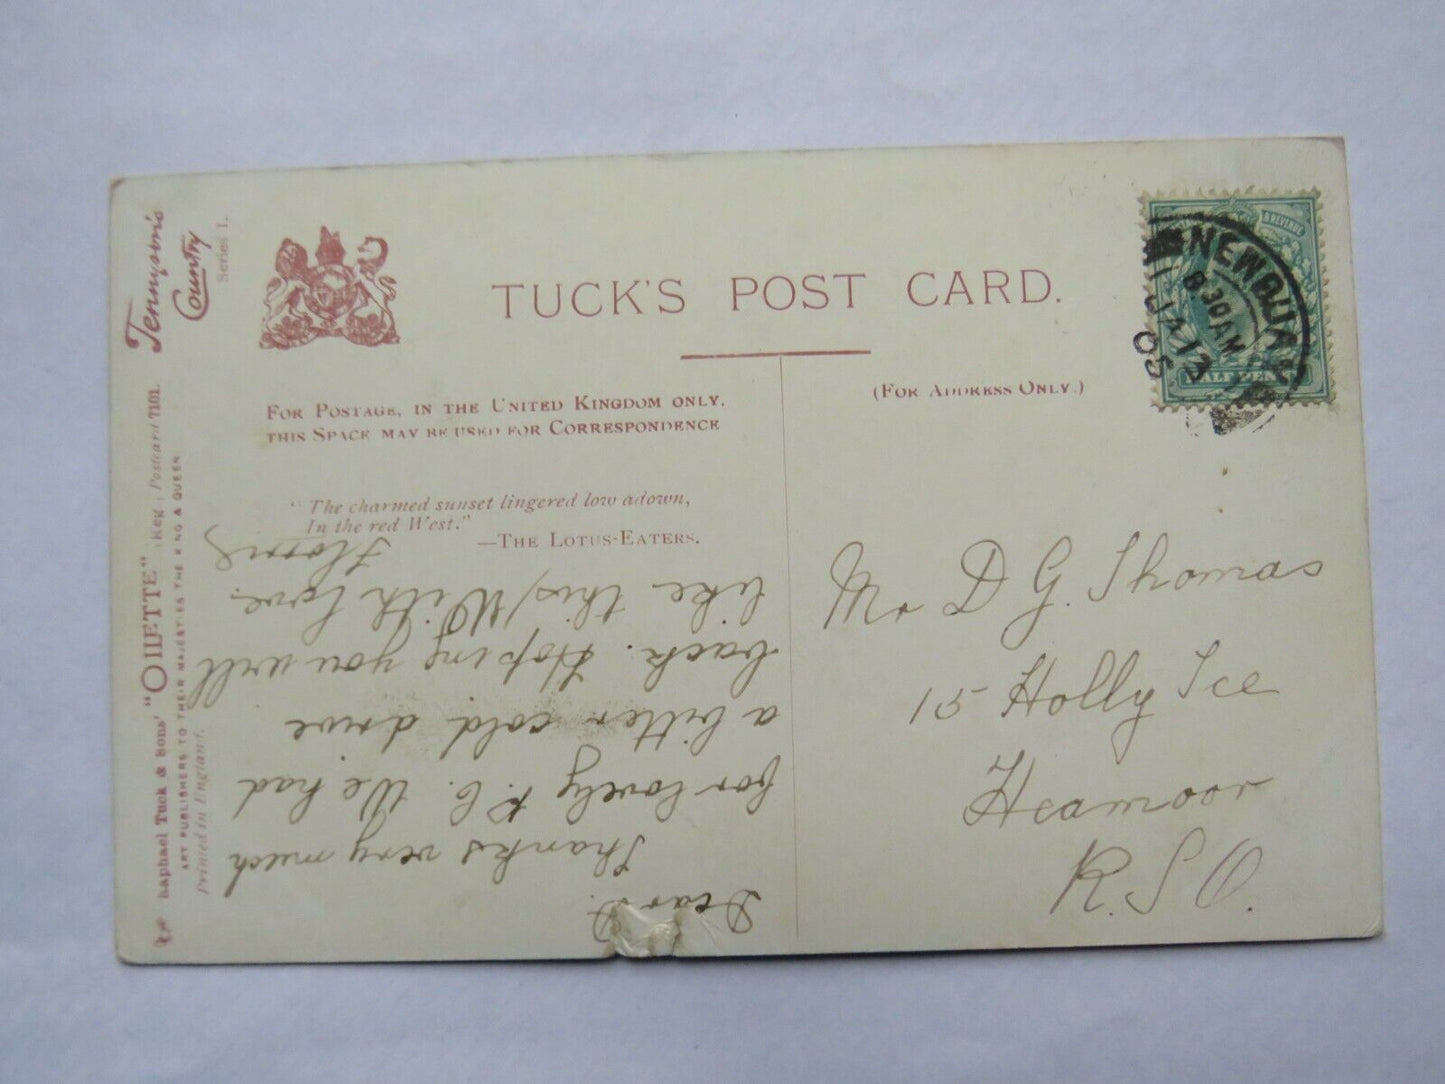 TUCK'S POST CARD.
FOR POSTAGE, IN THE UNITED KINGDOM ONLY,
THIS SPACE MAY BE USED FOR CORRESPONDENCE
(FOR ADDRESS ONLY.)
"The charmed sunset lingered low adown,
In the red West."
—THE LOTUS-EATERS.
Dear D.
Thanks very much
for lovely P.C. We had
a bitter cold drive
back. Hoping you will
like this/With love.
Florrie
Mr D G. Thomas
15 Holly Tce
Heamoor
R.S.O.
NEWQUAY
8.30AM
JA 13
05
HALF PENNY
Tennyson's
Country
Series I.
Raphael Tuck & Sons' "OILETTE" [Reg] Postcard 7101.
ART PUBLISHERS TO THEIR MAJESTIES THE KING & QUEEN
Printed in England.